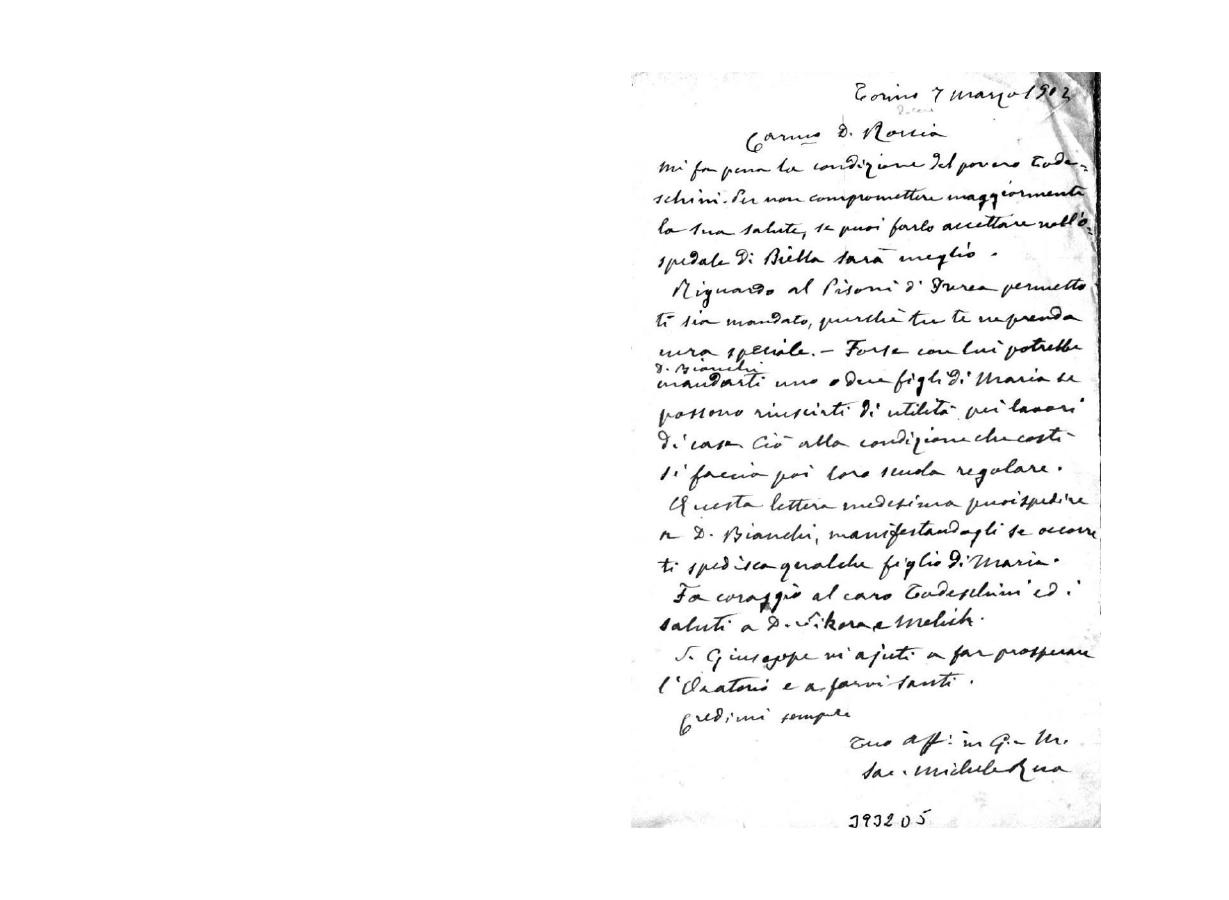 Torino 7 marzo 1902
Carmo D.
Mi fa pena la condizione del povero Tode-
schini. Per non compromettere maggiormente
la sua salute, se puoi farlo accettare nell'o-
spedale di Biella sarà meglio.
Riguardo al Pisoni d'Ivrea permetto
ti sia mandato, purchè tu te ne prenda
cura speciale. - Forse con lui potrebbe
D. Bianchi
mandarti uno o due figli di Maria se
possono riuscirti di utilità pei lavori
di casa Ciò alla condizione che costì
si faccia poi loro scuola regolare.
Questa lettera medesima puoi spedire
a D. Bianchi, manifestandogli se occorre
ti spedisca qualche figlio di Maria.
Fa coraggio al caro Todeschini ed i
saluti a D. Sikora e Melich.
S. Giuseppe vi ajuti a far prosperare
l'Oratorio e a farvi santi.
Credimi sempre
Tuo Aff: in G. e M.
Sac. Michele Rua
39320 5